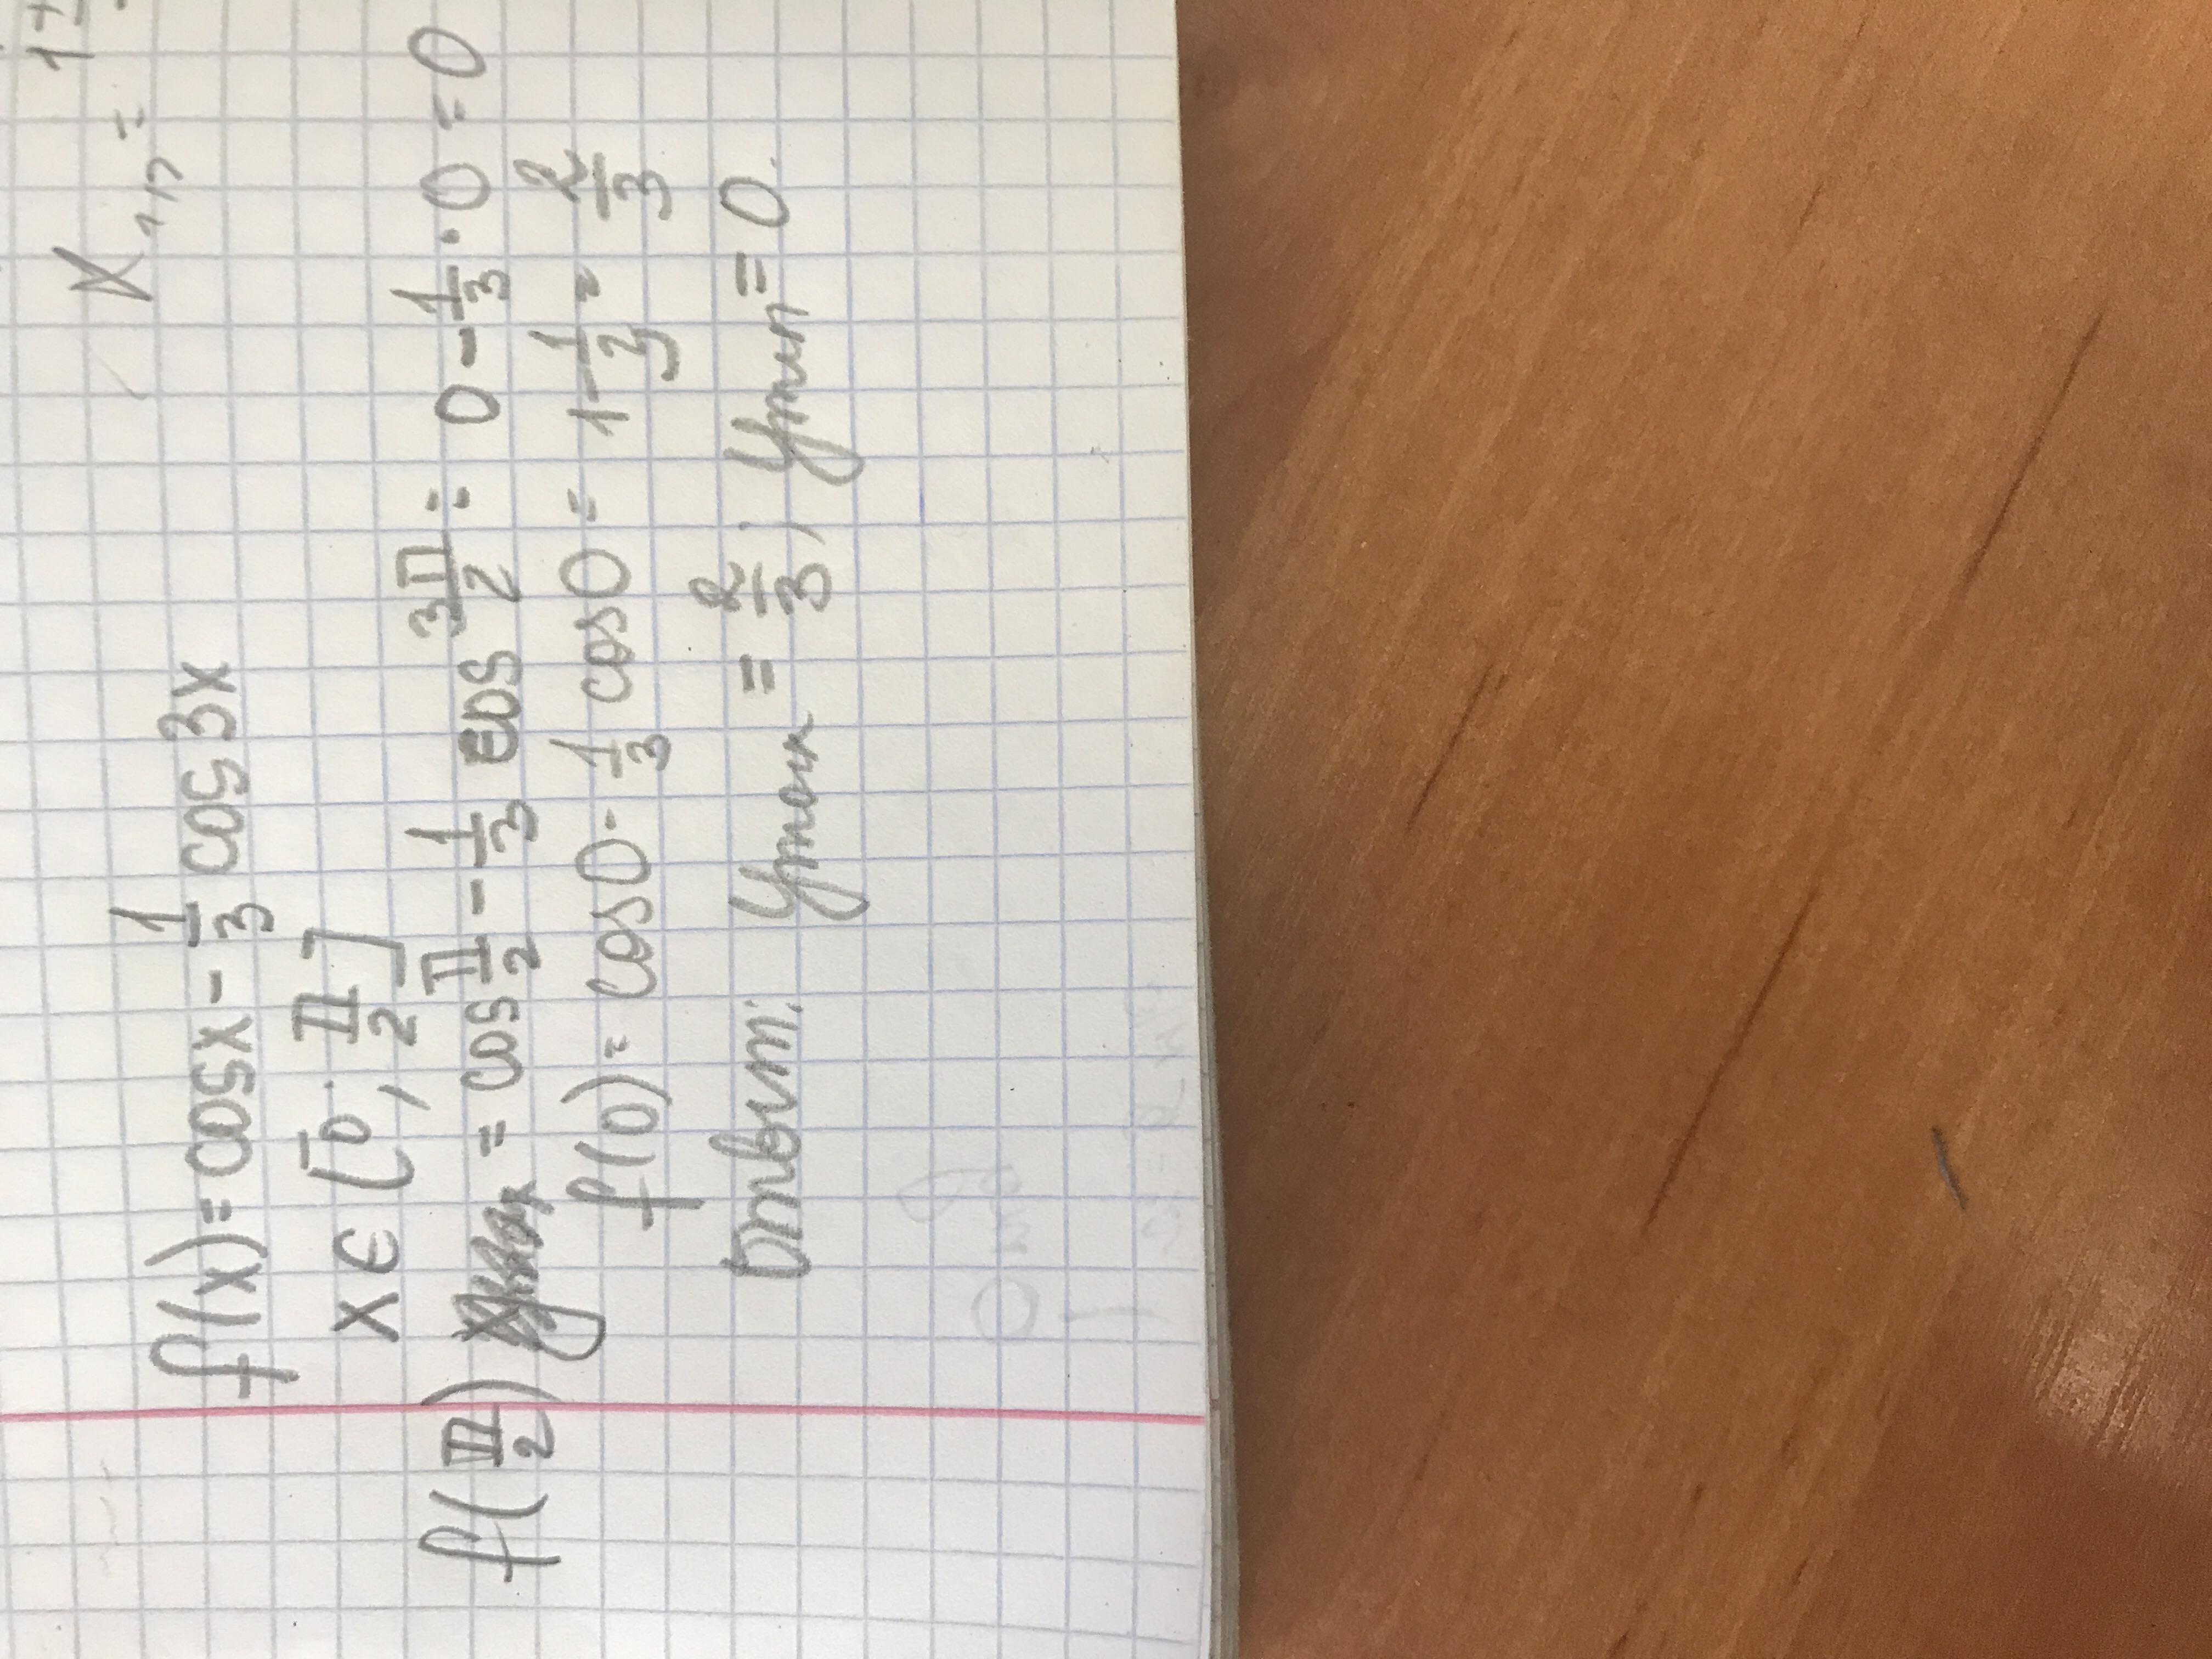 1+
X₁,₂ =
f(x) = cosx - 1/3 cos3x
x ∈ [0; π/2]
f(π/2) = cos π/2 - 1/3 cos 3π/2 = 0 - 1/3 · 0 = 0
f(0) = cos0 - 1/3 cos0 = 1 - 1/3 = 2/3
Ответ: Ymax = 2/3; Ymin = 0.